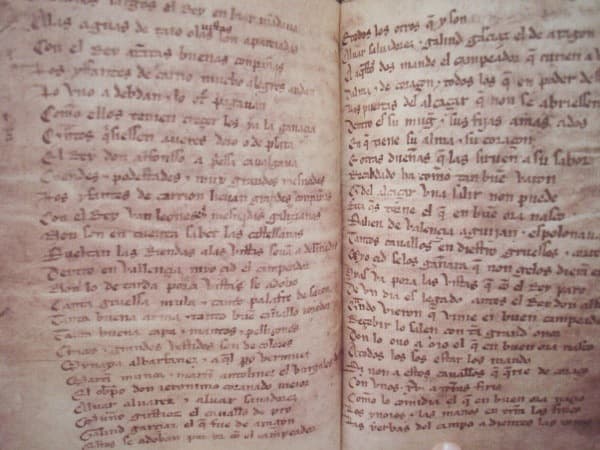 largos el Rey en buē mādava
Alas aguas de taio olas uistas son aparciadas
Con el Rey atātas buenas conpañas
Los yffantes de carriō mucho alegres andan
Lo vno adebdan & lo ot° pagauan
Com̃o ellos tenien creçer les ya la ganaçia
Q̃ntos q̃siessen aueres doro o de plata
El Rey don alfonsso a p̃essa caualgaua
Cuendes & podestades & muy grandes mesnadas
Los yffantes de carrion lieuan grandes conpañas
Con el Rey van leoneses & mesnadas galizianas
Non son en cuenta sabet las castellanas
Sueltan las Riendas alas vistas se uā a deliñadas
Dentro en vallençia myo çid el campeador
Non lo detarda pora las vistas se adobo
Tanta gruessa mula & tanto palafre de sazon
Tanta buena arma & tanto buē cauallo coredor
Tanta buena capa & mantos & pelliçones
Chicos & grandes vestidos son de colores
Mynaya albarfanez & aq̄l po vermuez
Martī munoz & martī antolinez el burgales de pro
El obp̄o don ieronimo coranado meior
Aluar aluarez & aluar saluadorez
Muño gustioz el cauallo de pro
Galind garciaz el q̄ fue de aragon
Estos se adoban por yr cō el campeador
E todos los otros q̄ y son
Aluar saluadorez & galind garciaz el de aragon
A aq̄stos dos mando el campeador q̄ curien a
Dalma & de coraçon & todos los q̄ en poder de
Las puertas del alcaçar q̄ non se abriessen
Dentro es su mugr̄ & sus fijas amas ados
En q̄ tiene su alma & su coraçon
E otras dueñas q̄ las siruen a su sabor
Recabdado ha como tan buē varon
Q̄ del alcaçar vna salir non puede
Fata q̄s torne el q̄ en buē ora nasco
Salien de valencia aguijan & espolonauā
Tantos cauallos en diestro gruessos &
Myo çid selos gañara q̄ non gelos dierā en
Hyas va pora las vistas q̄ cō el Rey paro
De vn dia es legado antes el Rey don alf
Q̄ndo vieron q̄ vinie el buen campeador
Reçebir lo salen con tā grand onor
Don lo ouo a oio el q̄ en buē ora nasco
A todos los sos estar los mando
Si non a estos cauallos q̄ q̄rie de coraçō
Con vnos .xv. a tierras firio
Como lo comidia el q̄ en buen ora naçio
Los ynoios & las manos en tierra los finco
Las yerbas del campo a dientes las tomo